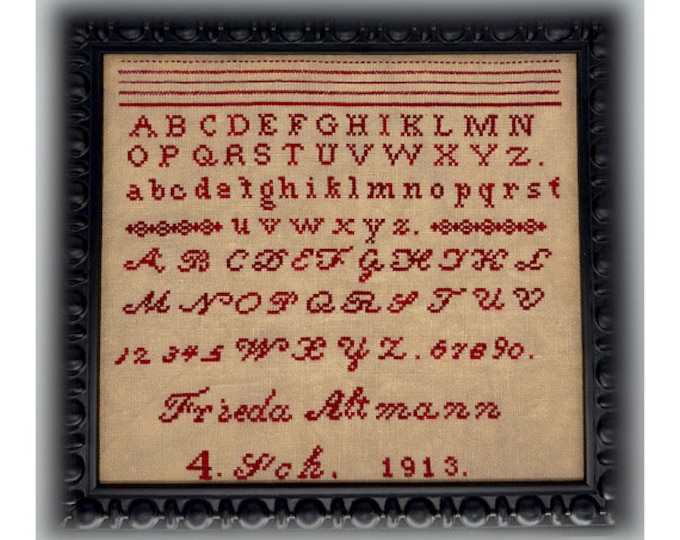 A B C D E F G H I K L M N
O P Q R S T U V W X Y Z.
a b c d e f g h i k l m n o p q r s t
u v w x y z.
A B C D E F G H I K L
M N O P Q R S T U V
1 2 3 4 5 W X Y Z. 6 7 8 9 0.
Frieda Altmann
4. Sch. 1913.